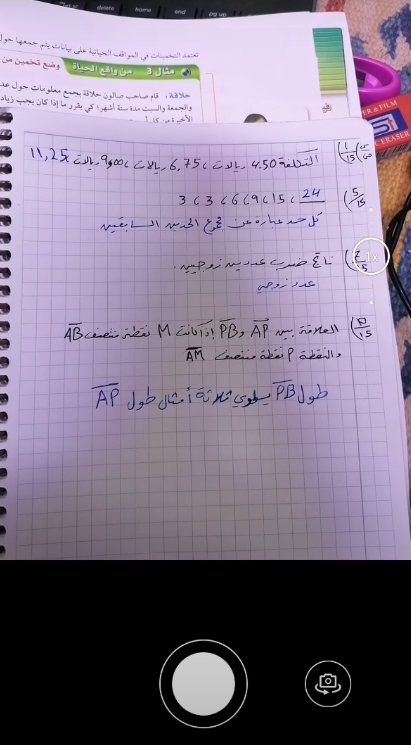 delete
home
end
pg up
تعتمد التخمينات في المواقف الحياتية على بيانات يتم جمعها حول
مثال 3 من واقع الحياة وضع تخمين من
حلاقة: قام صاحب صالون حلاقة بجمع معلومات حول عدد
والجمعة والسبت مدة ستة أشهر؛ كي يقرر ما إذا كان يجب زيادة
ER & FILM
ERASER
التكلفة 4.50 ريال، 6,75 ريال، 9,00 ريال، 11,25
5/15) 24 ، 15 ، 9 ، 6 ، 3 ، 3
كل حد عبارة عن مجموع الحدين السابقين
ناتج ضرب عددين زوجيين
عدد زوجي
العلاقة بين AP و PB إذا كانت M نقطة منتصف AB
والنقطة P نقطة منتصف AM
طول PB يساوي ثلاثة أمثال طول AP
1x